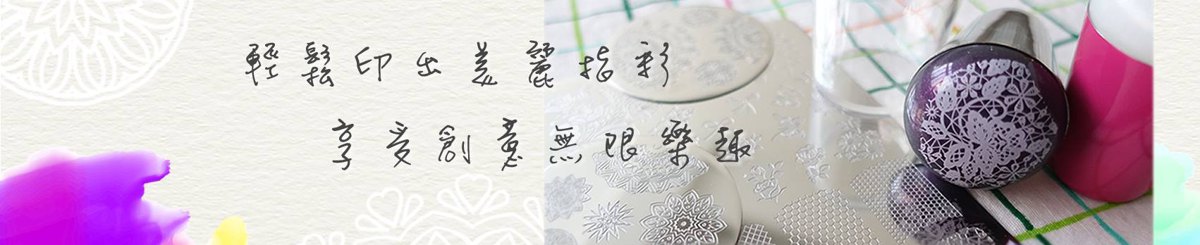 輕鬆印出美麗指彩
享受創意無限樂趣